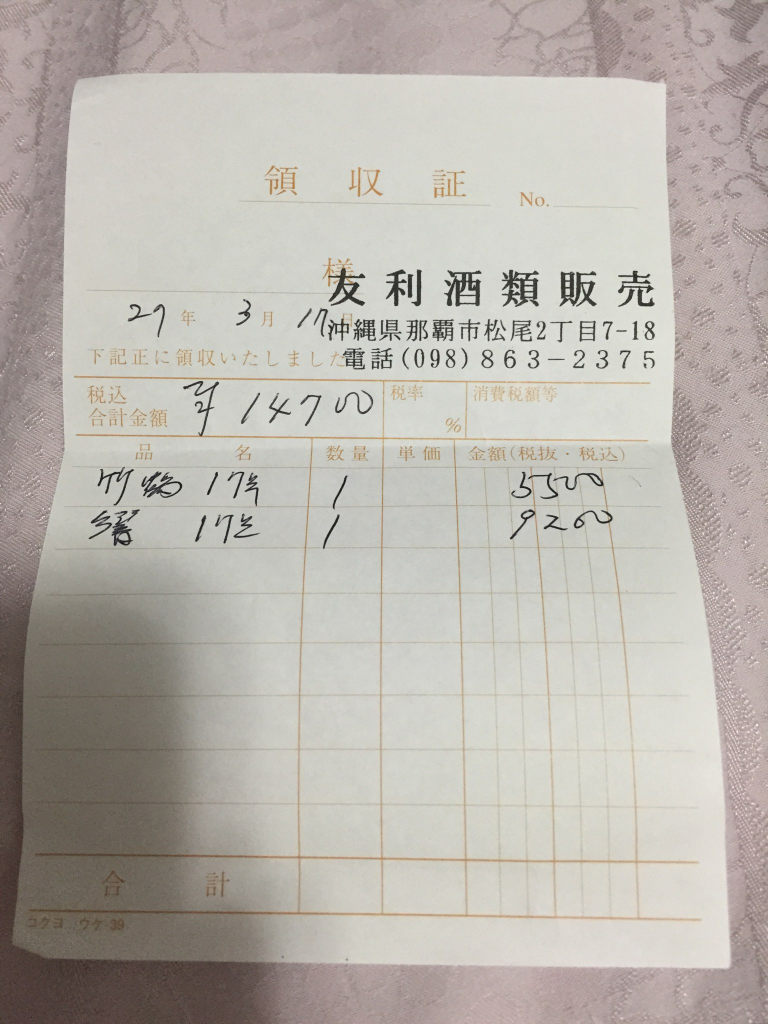 領収証
No.
様
友利酒類販売
27年 3月 17日
沖縄県那覇市松尾2丁目7-18
下記正に領収いたしました
電話(098)863-2375
税込合計金額 ¥14700 税率 % 消費税額等
品名 数量 単価 金額(税抜・税込)
竹鶴 17年 1 5500
響 17年 1 9200
合計
コクヨ ウケ-39